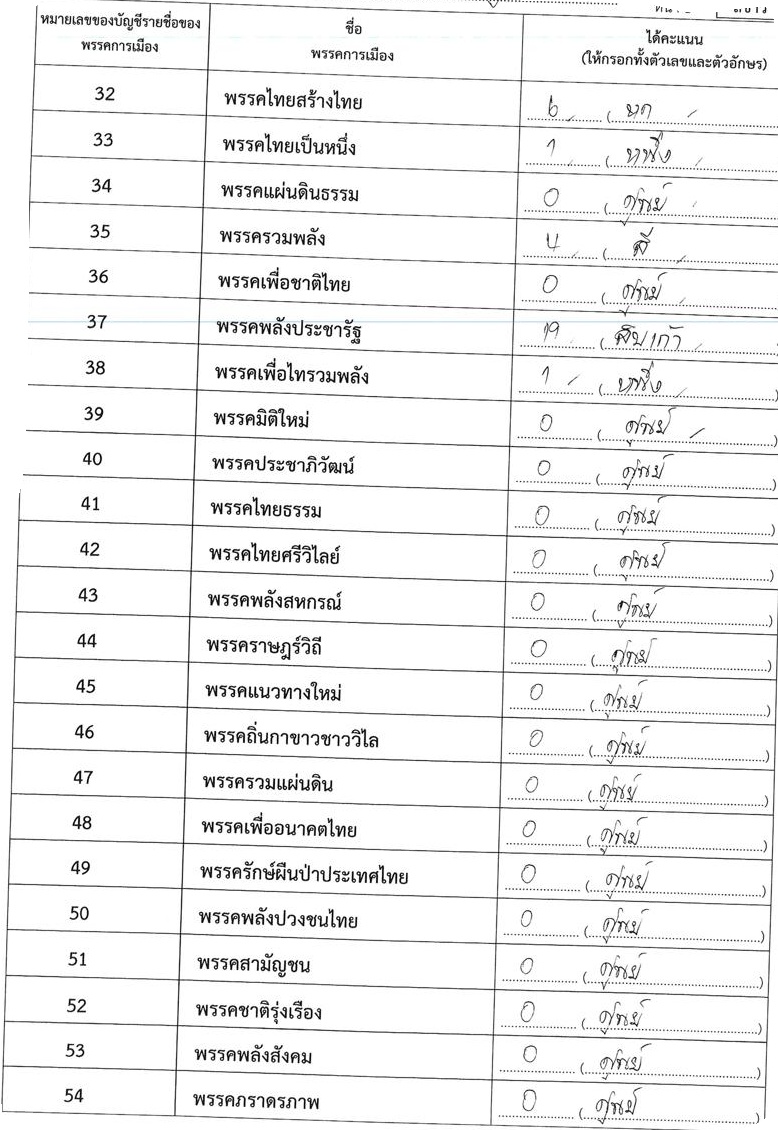 หมายเลขของบัญชีรายชื่อของ ชื่อ ได้คะแนน
พรรคการเมือง พรรคการเมือง (ให้กรอกทั้งตัวเลขและตัวอักษร)
32 พรรคไทยสร้างไทย 6 ( หก
33 พรรคไทยเป็นหนึ่ง 1 ( หนึ่ง
34 พรรคแผ่นดินธรรม 0 ( ศูนย์
35 พรรครวมพลัง 4 ( สี่
36 พรรคเพื่อชาติไทย 0 ( ศูนย์
37 พรรคพลังประชารัฐ 19 ( สิบเก้า
38 พรรคเพื่อไทรวมพลัง 1 ( หนึ่ง )
39 พรรคมิติใหม่ 0 ( ศูนย์ )
40 พรรคประชาภิวัฒน์ 0 ( ศูนย์ )
41 พรรคไทยธรรม 0 ( ศูนย์ )
42 พรรคไทยศรีวิไลย์ 0 ( ศูนย์ )
43 พรรคพลังสหกรณ์ 0 ( ศูนย์ )
44 พรรคราษฎร์วิถี 0 ( ศูนย์ )
45 พรรคแนวทางใหม่ 0 ( ศูนย์ )
46 พรรคถิ่นกาขาวชาววิไล 0 ( ศูนย์ )
47 พรรครวมแผ่นดิน 0 ( ศูนย์ )
48 พรรคเพื่ออนาคตไทย 0 ( ศูนย์ )
49 พรรครักษ์ผืนป่าประเทศไทย 0 ( ศูนย์ )
50 พรรคพลังปวงชนไทย 0 ( ศูนย์ )
51 พรรคสามัญชน 0 ( ศูนย์ )
52 พรรคชาติรุ่งเรือง 0 ( ศูนย์ )
53 พรรคพลังสังคม 0 ( ศูนย์ )
54 พรรคภราดรภาพ 0 ( ศูนย์ )